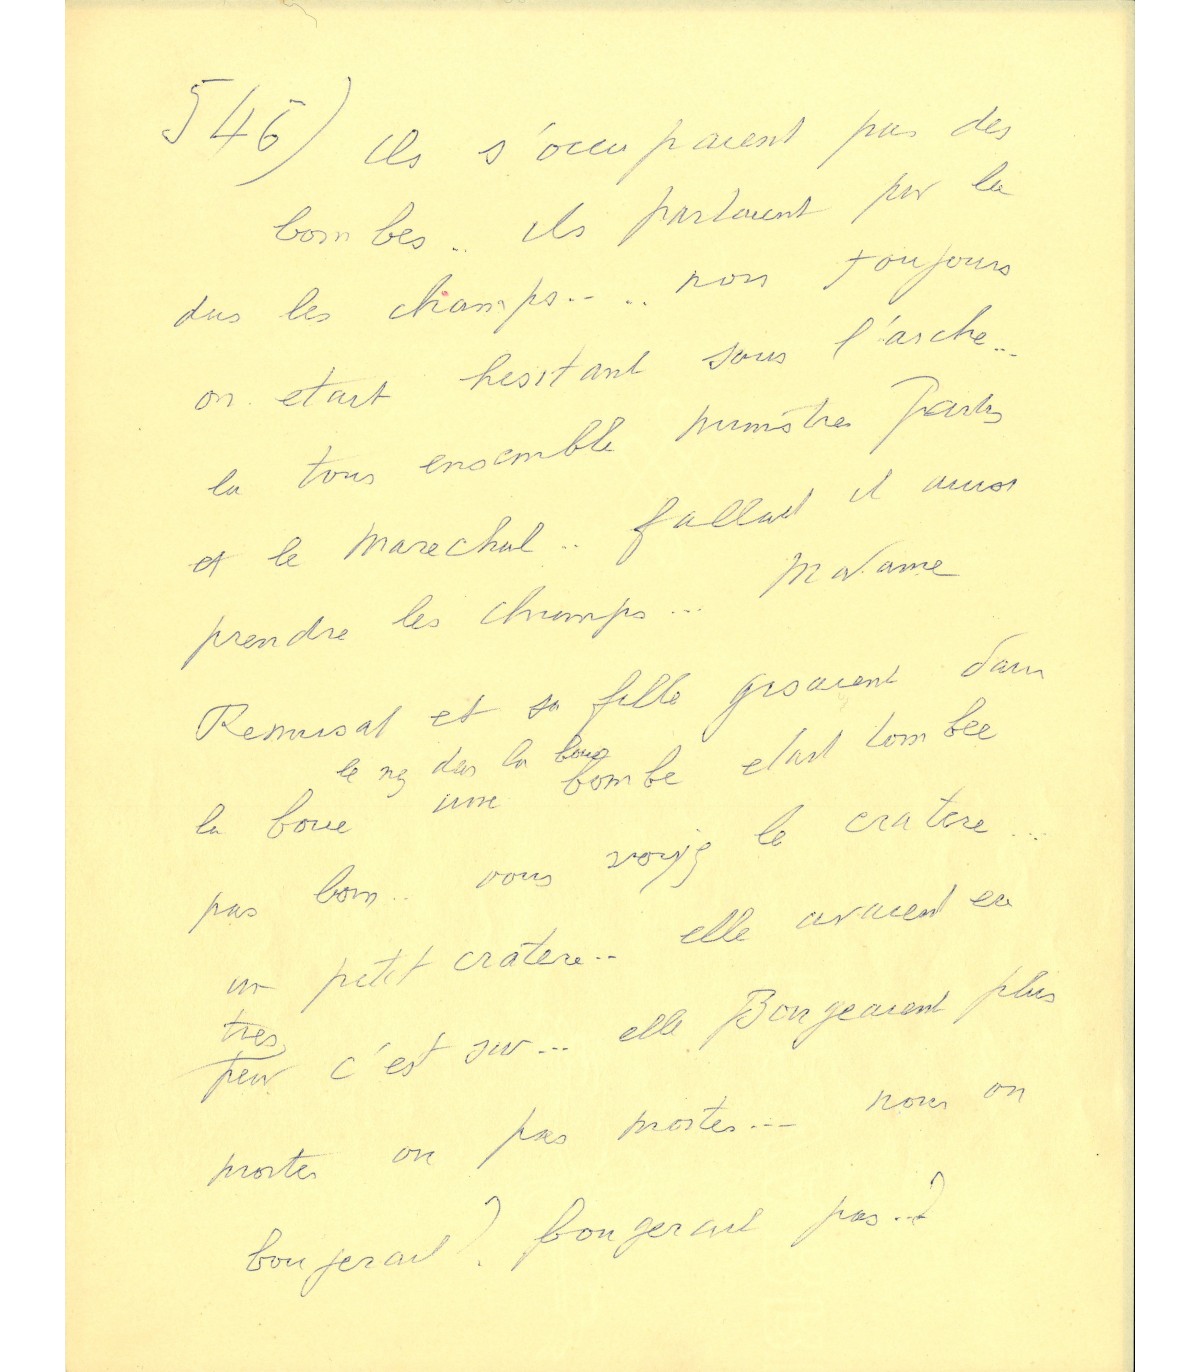 546) ils s'occupaient pas des
bombes.. ils partaient par la
dans les champs.. .. nous toujours
on etait hesitant sous l'arche...
la tous ensemble ministres Partis
et le Marechal.. fallait il aussi
prendre les champs... Madame
Remusat et sa fille gisaient dans
le nez dans la boue
la boue une bombe etait tombée
pas loin.. vous voyez le cratere...
un petit cratere.. elle avaient eu
tres
peur c'est sur... elle Bougeaient plus
mortes ou pas mortes... nous on
bougerait? bougerait pas..?